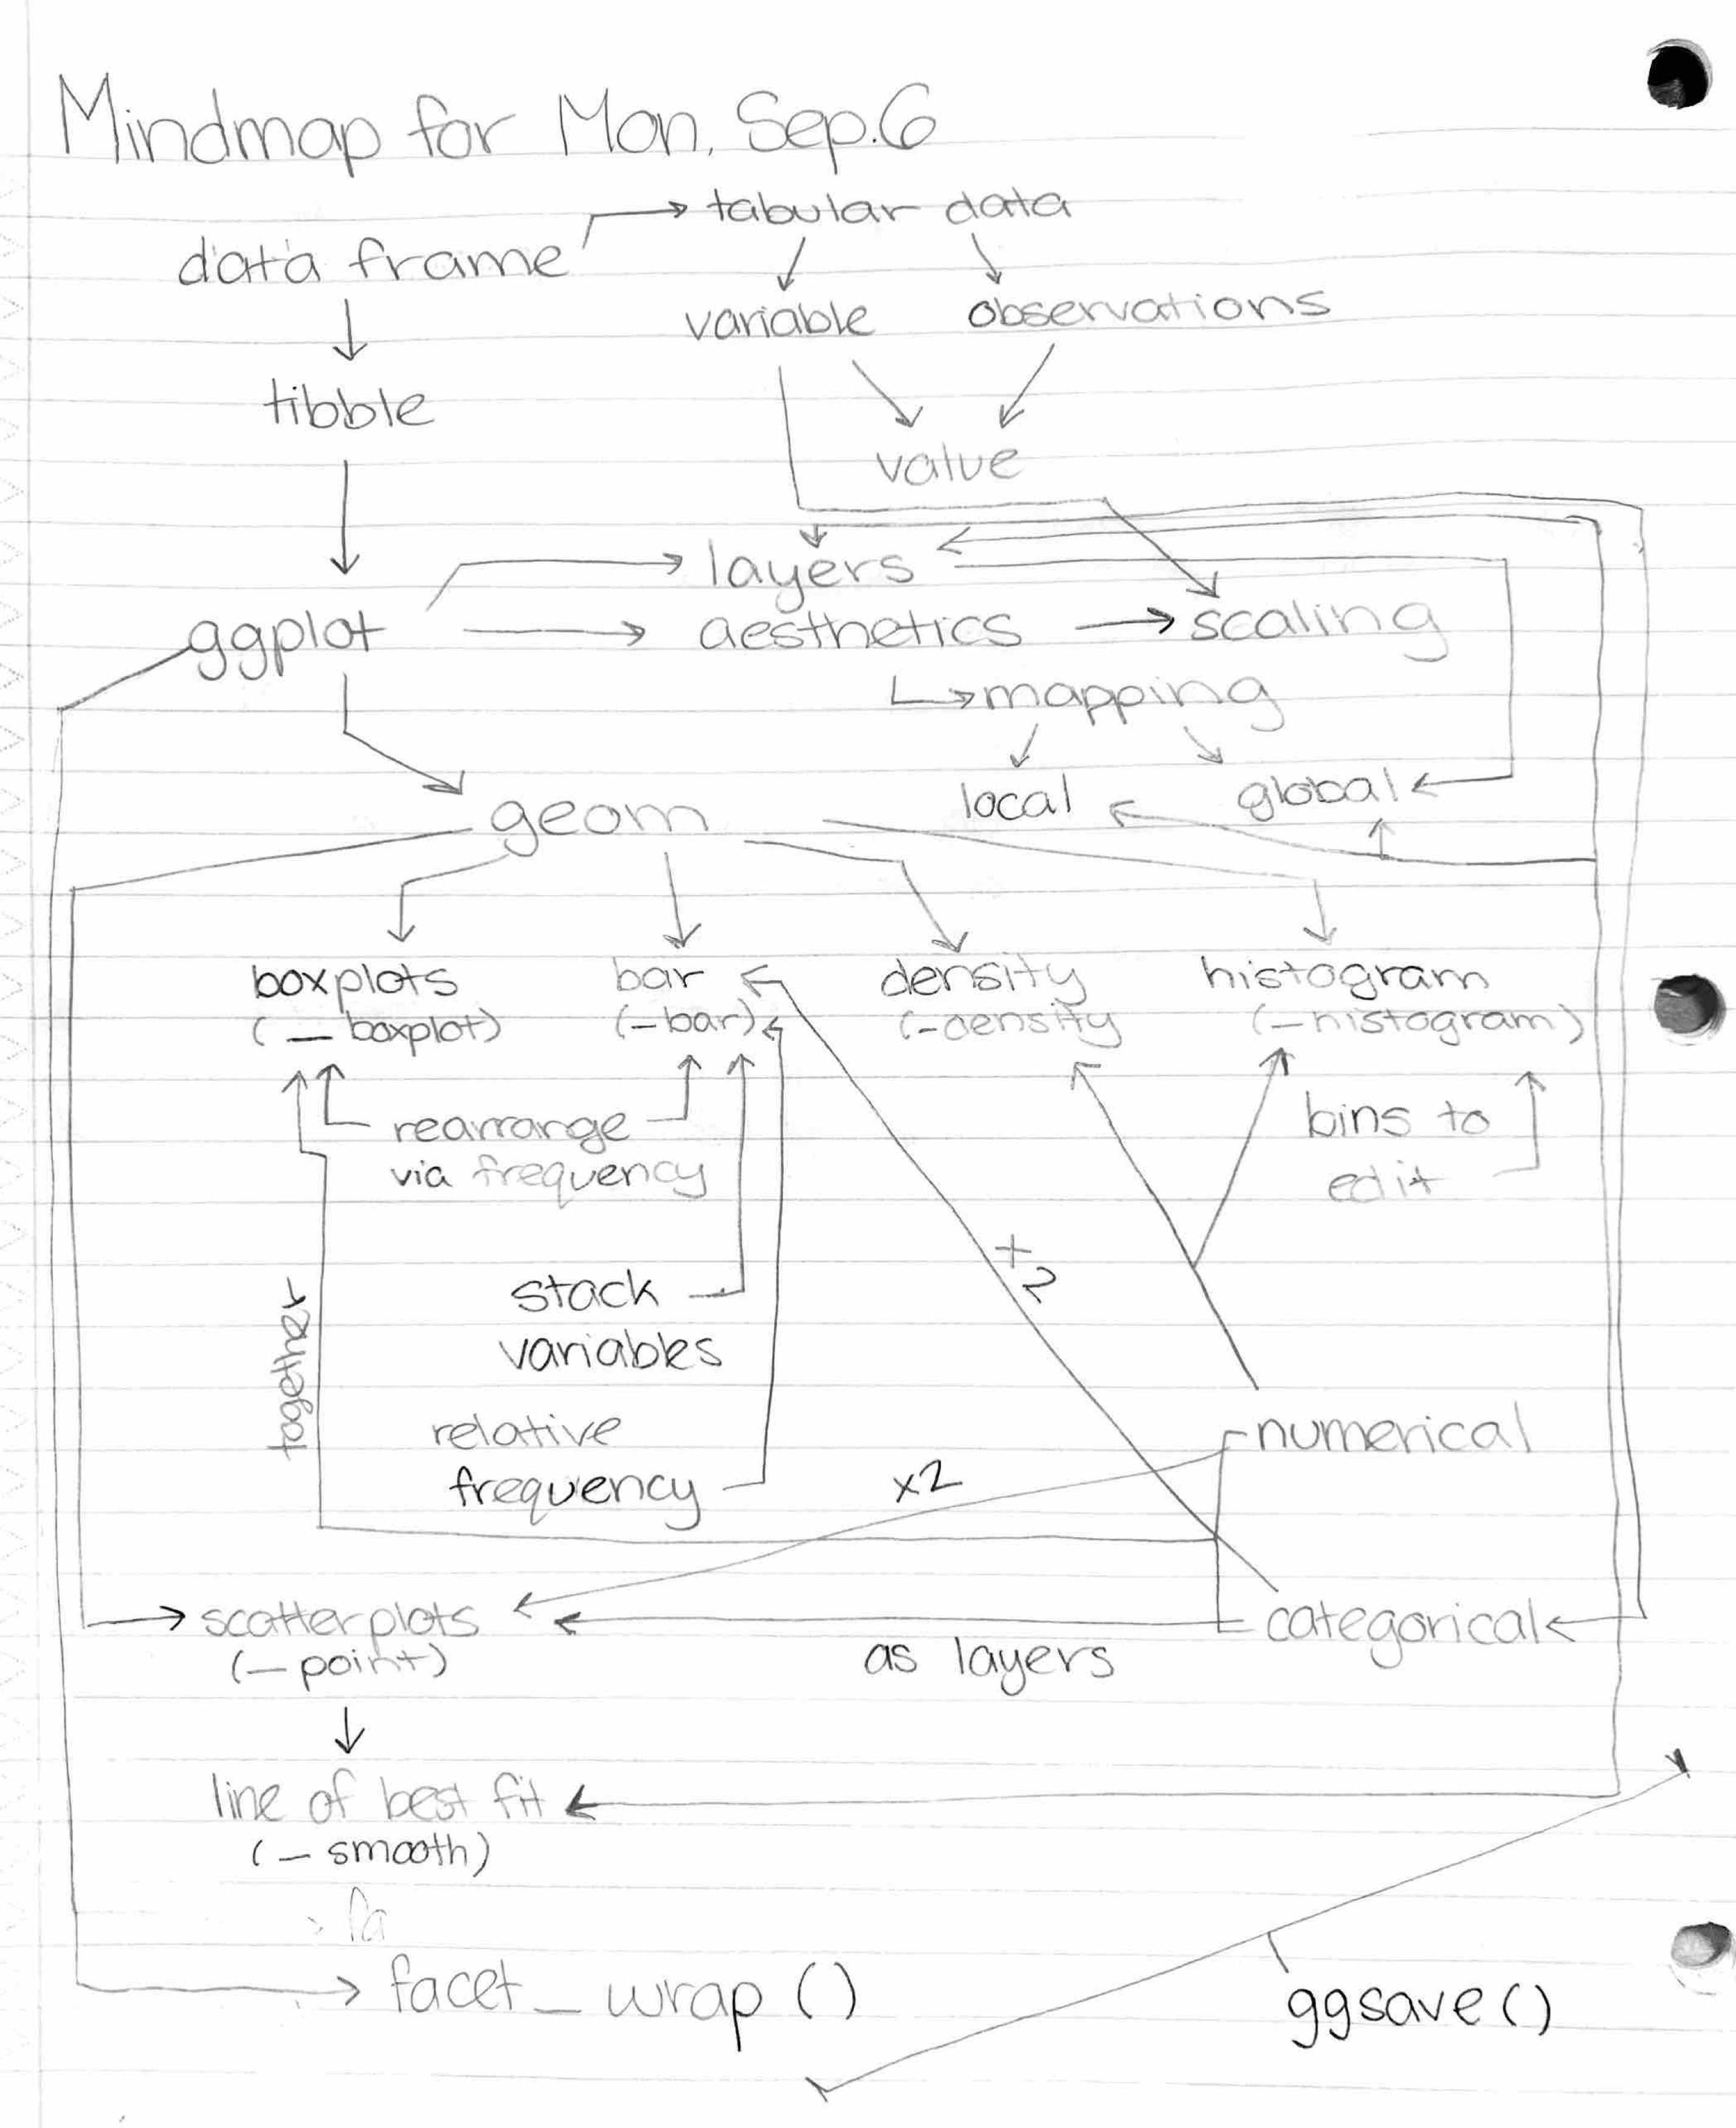 Mindmap for Mon, Sep.6
tabular data
data frame
variable observations
tibble
value
layers
ggplot aesthetics scaling
mapping
local global
geom
boxplots bar density histogram
(_boxplot) (-bar) (-density (-histogram)
rearrange
via frequency
bins to
edit
+2
stack
variables
together
relative
frequency
numerical
x2
scatterplots categorical
(-point) as layers
line of best fit
(-smooth)
fa
facet_wrap()
ggsave()